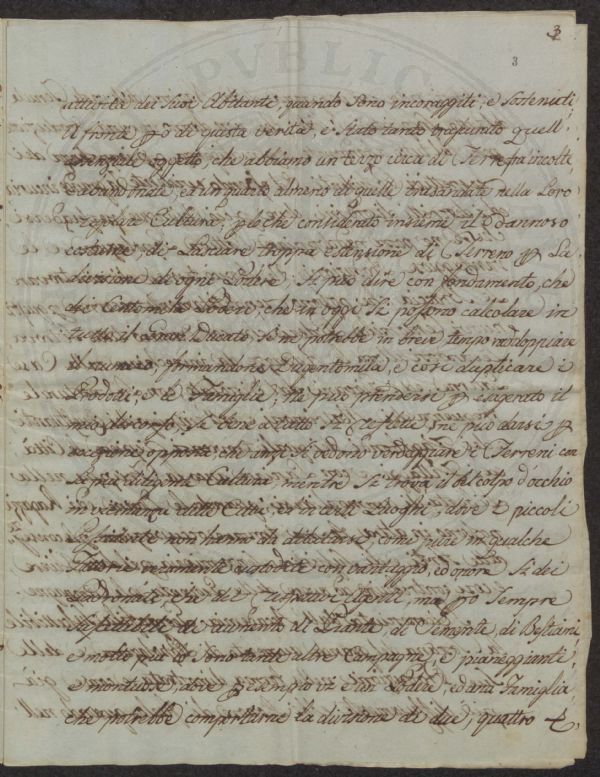 3
3
attività dei suoi Abitanti, quando sono incoraggiti, e sostenuti
il fronte di questa verità, è stato tanto trascurato quell'
oggetto, che abbiamo un terzo circa di Terre fra incolte
e abbandonate, ed un quarto almeno di quelle trasandate nella Loro
Cultura, lo che considerato insieme il dannoso
costume, di Lasciare troppa estensione di Terreno La
divisione di ogni Podere, si può dire con fondamento, che
di Centomila Poderi, che in oggi si possono calcolare in
tutto il Gran Ducato, se ne potrebbe in breve tempo raddoppiare
il numero, formandone Dugentomila, e così duplicare i
Prodotti, e le Famiglie, Ne può prendersi esagerato il
mio discorso, se bene a tutto si riflette, ne può darsi
eccezione opposta, che anzi si vedono verdeggiare i Terreni con
la più diligente Cultura, mentre si trova il bel colpo d'occhio
in vicinanza alle Città, ed in certi Luoghi, dove i piccoli
non hanno da dilatarsi, come pure in qualche
Fattoria veramente custodita con vantaggio, ed onore
ma sempre
di aumento di Piante, di Semente, di Bestiami
e molto più lo sono tante altre Campagne, e pianeggianti,
e montuose, dove esempio vi è un Podere, ed una Famiglia
che potrebbe comportarne la divisione di due, quattro